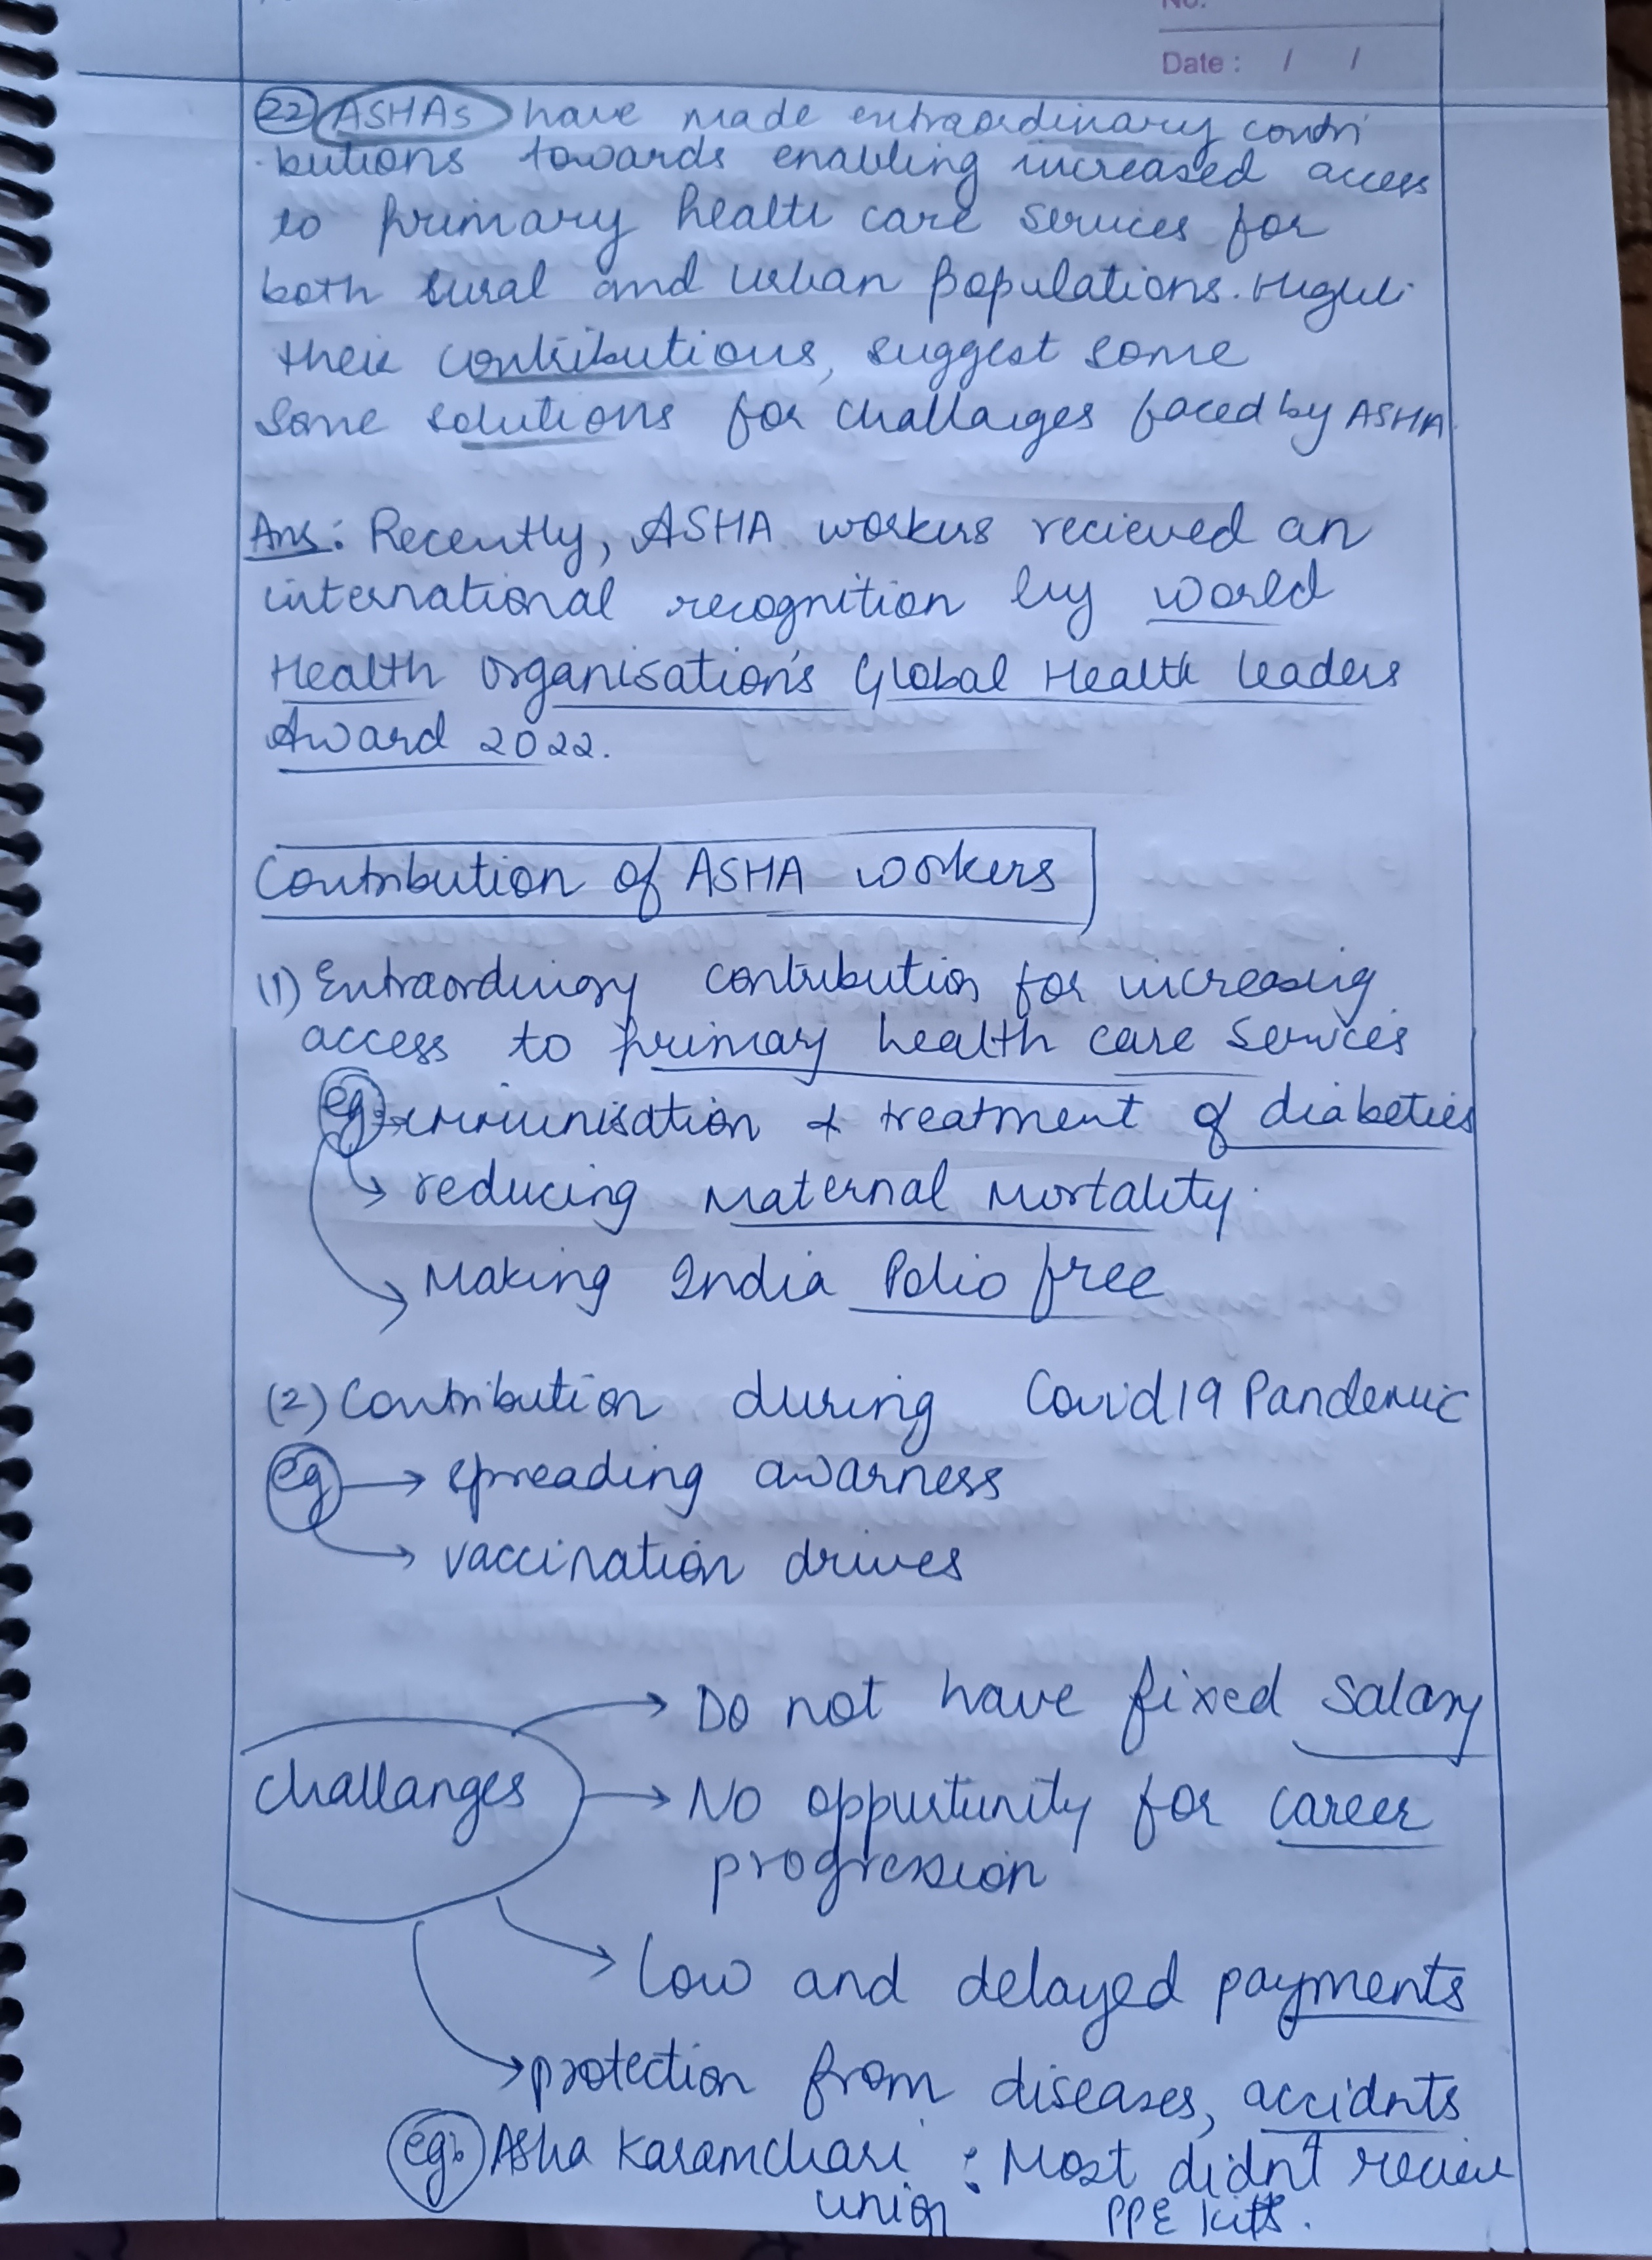 No.
Date : / /
22 ASHAs have made extraordinary contri
butions towards enabling increased access
to primary health care services for
both rural and urban populations.
their contributions, suggest some
some solutions for challanges faced by ASHA.
Ans: Recently, ASHA workers recieved an
international recognition by world
Health organisation's Global Health leaders
Award 2022.
Contribution of ASHA workers
(1) Extraordinary contribution for increasing
access to primary health care services
eg: immunisation & treatment of diabeties
→ reducing Maternal Mortality.
→ Making India Polio free
(2) Contribution during Covid 19 Pandemic
eg → spreading awarness
→ vaccination drives
→ Do not have fixed salary
challanges → No oppurtunity for career
progression
→ low and delayed payments
→ protection from diseases, accidnts
eg: Asha Karamchari : Most didn't recieve
union PPE kits.